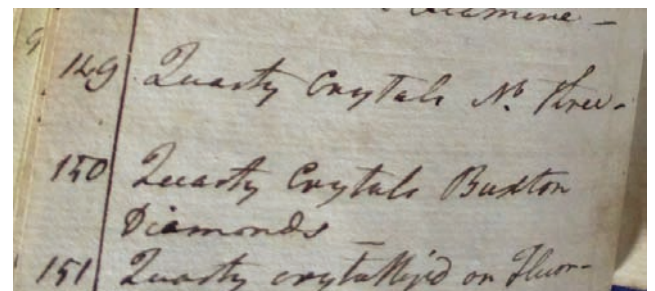 Calamine -
149 Quartz Crystals No. Three -
150 Quartz Crystals Buxton
Diamonds -
151 Quartz crystallized on Fluor -